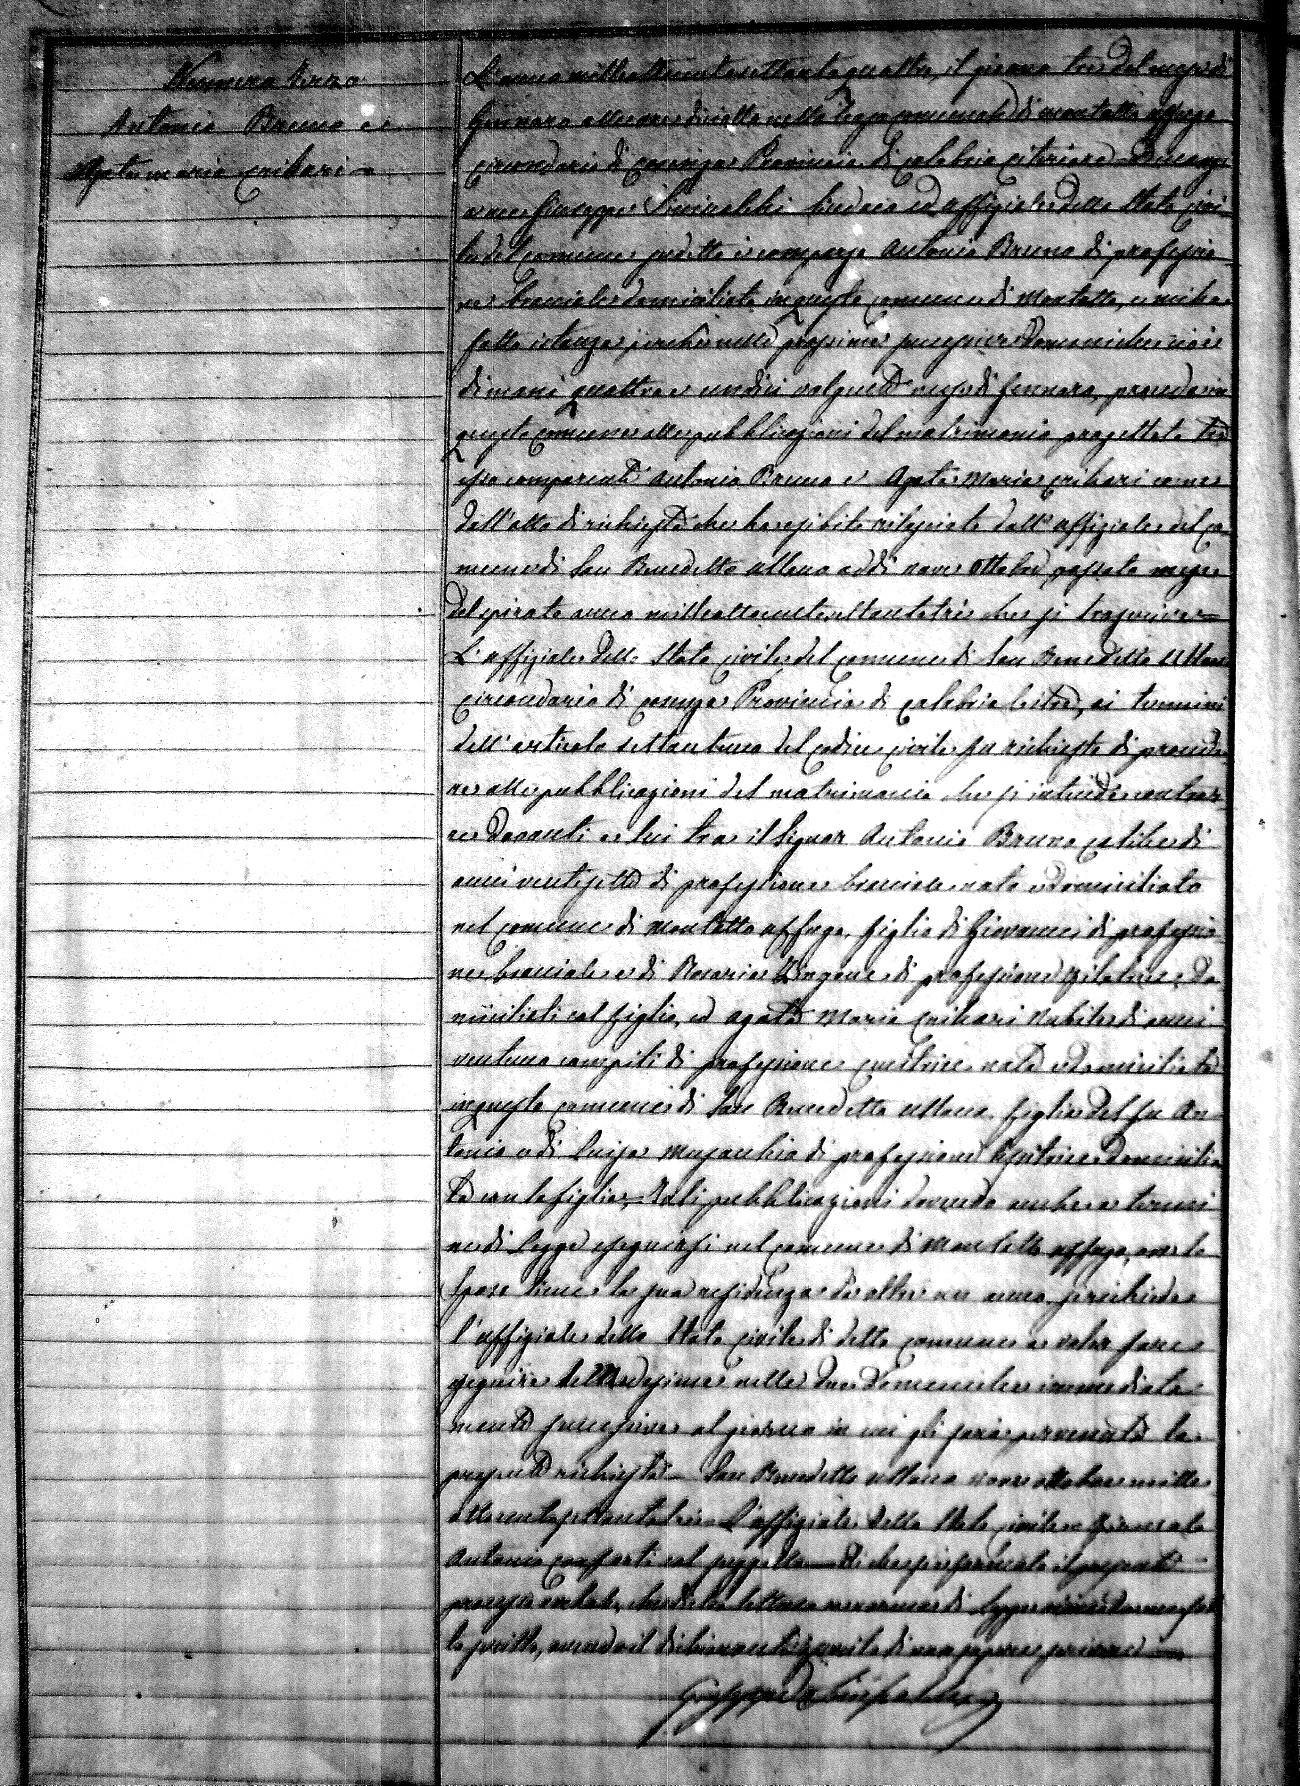 Numero terzo
Antonio Bruno e
Agata maria Cribari
L'anno milleottocentosettantaquattro, il giorno tre del mese di
Gennaro alle ore diciotto nella casa comunale di montalto uffugo
circondario di cosenza Provincia di calabria citeriore Innanzi
a me Giuseppe Sindaco ed uffiziale dello Stato civi
le del comune sudetto è comparso Antonio Bruno di professio
ne bracciale domiciliato in questo comune di Montalto, e mi ha
fatto istanza perchè nelle prossime successive Domeniche cioè
dimani quattro e undici volgente mese di Gennaro, proceda in
questo comune alle pubblicazioni del matrimonio progettato tra
esso comparente Antonio Bruno e Agata Maria Cribari come
dall'atto di richiesta che ha esibito rilasciato dall'uffiziale del co
mune di San Benedetto Ullano addì nove Ottobre passato mese
del spirato anno milleottocentosettantatrè che si trascrive
L'uffiziale dello Stato civile del comune di San Benedetto Ullano
circondario di cosenza Provincia di calabria Citra, ai termini
dell'articolo settantuno del codice civile fa richiesta di procede
re alle pubblicazioni del matrimonio che si intende contrar
re davanti a lui tra il Signor Antonio Bruno celibe di
anni ventisette di professione bracciale nato e domiciliato
nel comune di Montalto uffugo, figlio di Giovanni di professio
ne bracciale e di Rosaria Zingone di professione filatrice, do
miciliati col figlio, ed Agata Maria Cribari Nubile di anni
ventuno compiti di professione cucitrice nata e domiciliata
in questo comune di San Benedetto Ullano, figlia del fu An
tonio e di Luigia Musacchio di professione domicilia
ta con la figlia, Tali pubblicazioni dovendo anche a termi
ne di Legge eseguirsi nel comune di Montalto uffugo, ove lo
sposo tiene la sua residenza da oltre un anno, si richiede
l'uffiziale dello Stato civile di detto comune a voler fare
seguire le Medesime nelle due Domeniche immediata
mente successive al giorno in cui gli sarà pervenuta la
presente richiesta San Benedetto Ullano nove ottobre mille
ottocentosettantatre L'uffiziale dello Stato civile Firmato
Antonio Conforti col suggello Di che si è formato il presente
processo verbale, che dietro lettura a norma di legge
lo scritto, avendo il dichiarante di non sapere scrivere
Giuseppe